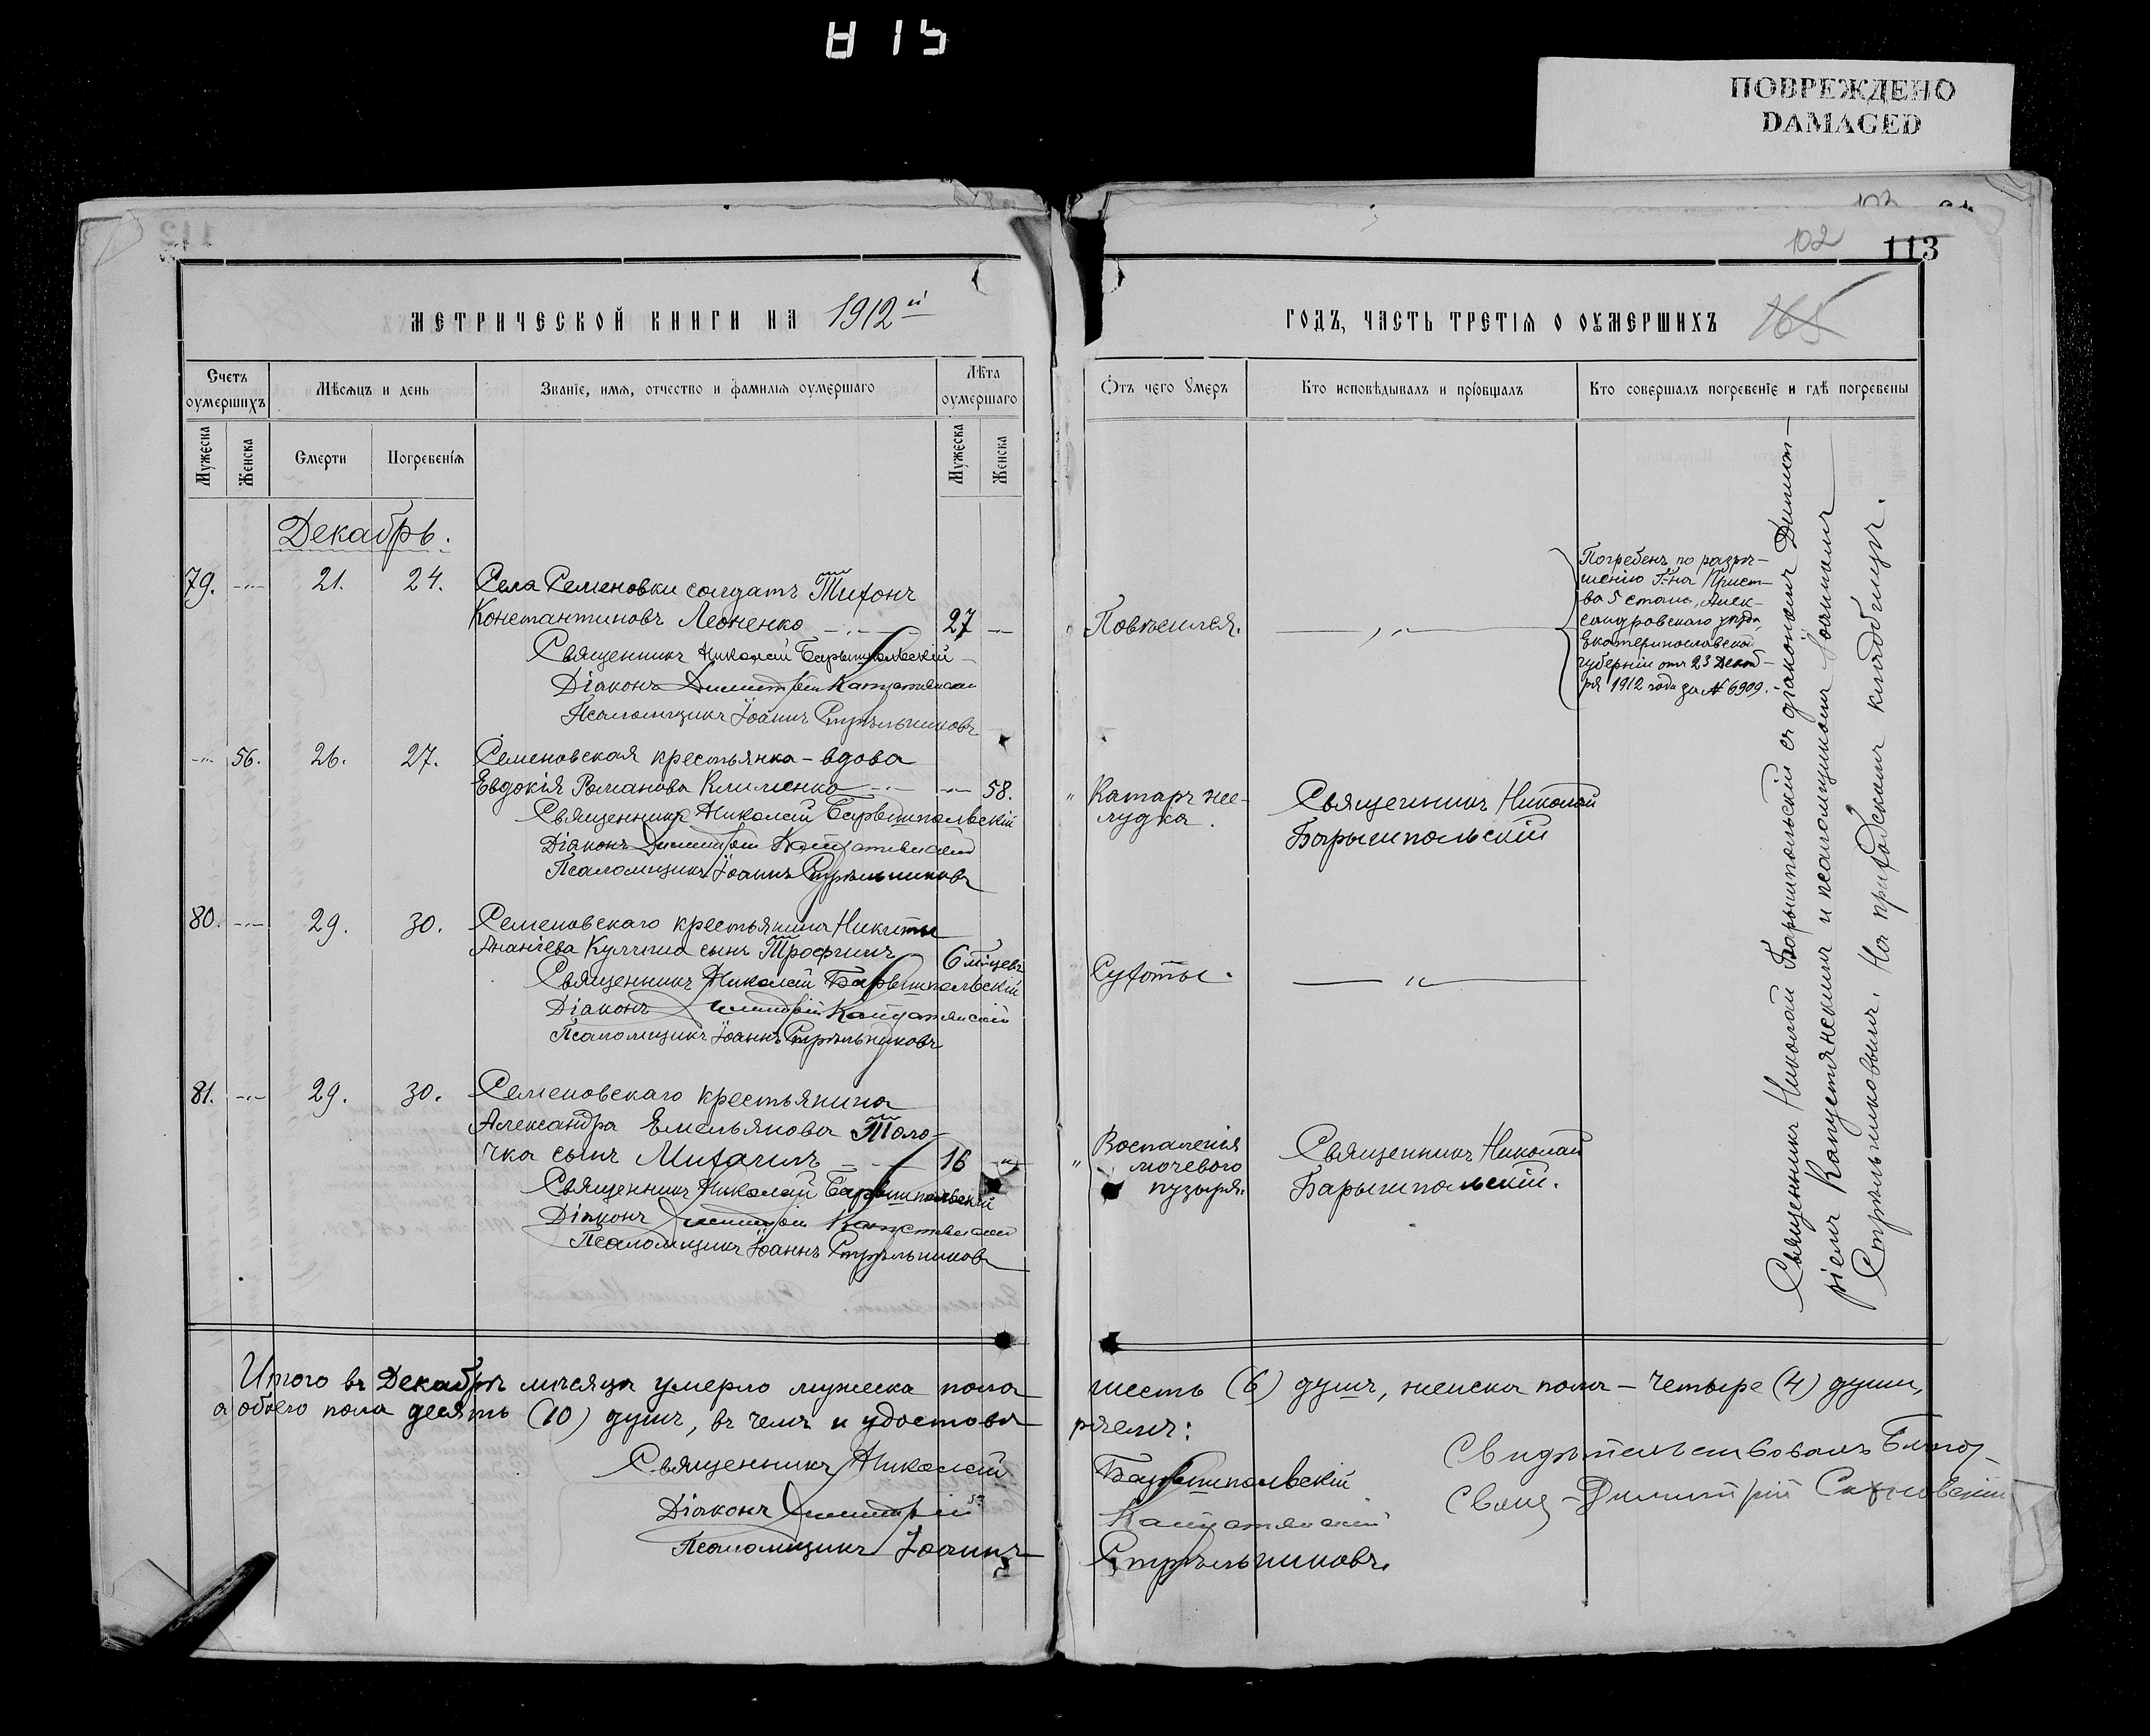 A 15
ПОВРЕЖДЕНО
DAMAGED
102
113
МЕТРИЧЕСКОЙ КНИГИ НА 1912й
ГОДЪ, ЧАСТЬ ТРЕТІЯ О ОУМЕРШИХЪ
165
Счетъ оумершихъ
Мѣсяцъ и день
Званіе, имя, отчество и фамилія оумершаго
Лѣта оумершаго
Отъ чего умеръ
Кто исповѣдывалъ и пріобщалъ
Кто совершалъ погребеніе и гдѣ погребены
Мужеска
Женска
Смерти
Погребенія
Мужеска
Женска
Декабрь.
79. -"- 21. 24. Села Семеновки солдатъ Тихонъ
Константиновъ Леоненко -"- 27 -"-
Священникъ Николай Барышпольскій
Діаконъ Димитрій Капустянскій
Псаломщикъ Іоаннъ Стрѣльниковъ
Повѣсился.
-"-
Погребенъ по разрѣ-
шенію Г-на Прист-
ва 5 стана, Алек-
сандровскаго уѣзда,
Екатеринославской
губерніи отъ 23 Декаб-
ря 1912 года за № 6909.
-"- 56. 26. 27. Семеновская крестьянка-вдова
Евдокія Романова Клименко -"- -"- 58.
Священникъ Николай Барышпольскій
Діаконъ Димитрій Капустянскій
Псаломщикъ Іоаннъ Стрѣльниковъ
Катаръ же-
лудка.
Священникъ Николай
Барышпольскій
80. -"- 29. 30. Семеновскаго крестьянина Никиты
Ананіева сынъ Трофимъ 6 мѣсяцевъ
Священникъ Николай Барышпольскій
Діаконъ Димитрій Капустянскій
Псаломщикъ Іоаннъ Стрѣльниковъ
Сухоты.
-"-
81. -"- 29. 30. Семеновскаго крестьянина
Александра Емельянова Толо-
чка сынъ Михаилъ -"- 16 -"-
Священникъ Николай Барышпольскій
Діаконъ Димитрій Капустянскій
Псаломщикъ Іоаннъ Стрѣльниковъ
Воспаленія
мочевого
пузыря.
Священникъ Николай
Барышпольскій.
Священникъ Николай Барышпольскій съ діакономъ Димит-
ріемъ Капустянскимъ и псаломщикомъ Іоанномъ
Стрѣльниковымъ. На приходскомъ кладбищѣ.
Итого въ Декабрѣ мѣсяцѣ умерло мужеска пола шесть (6) душъ, женска пола - четыре (4) души,
а обоего пола десять (10) душъ, въ чемъ и удостовѣ
ряемъ:
Священникъ Николай Барышпольскій
Діаконъ Димитрій Капустянскій
Псаломщикъ Іоаннъ Стрѣльниковъ.
Свидѣтельствовалъ Благоч.
Свящ. Димитрій